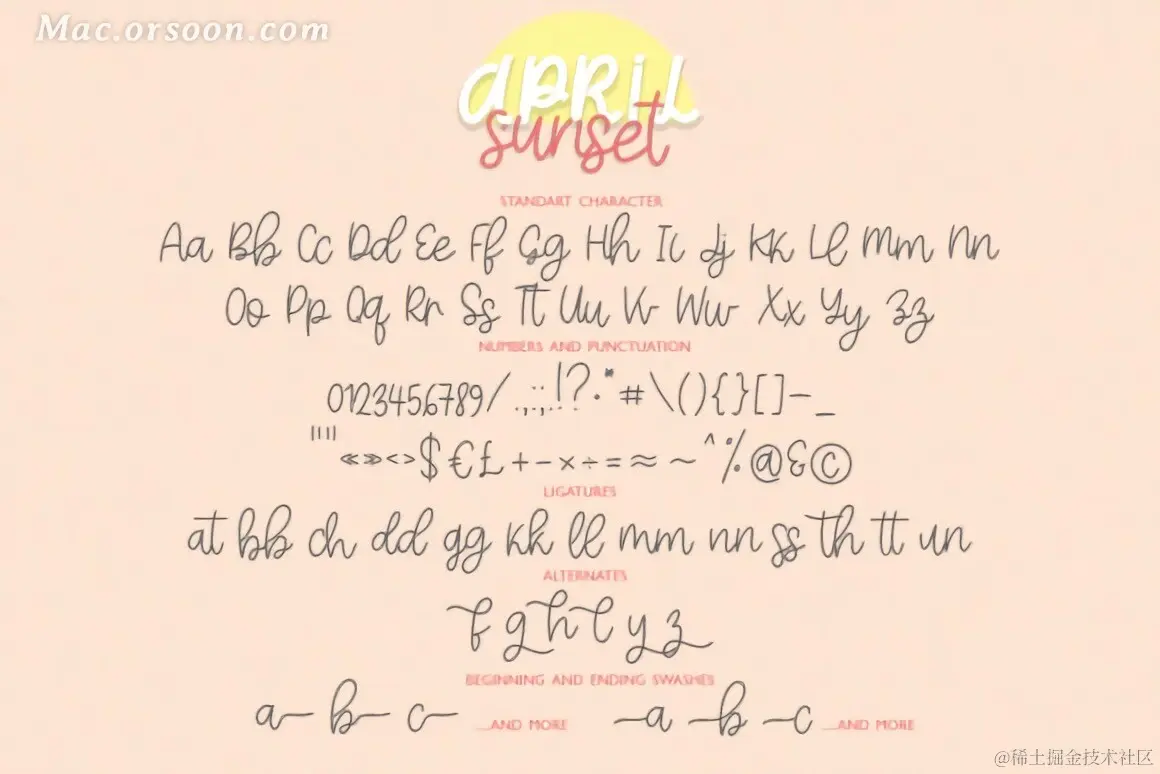 Mac.orsoon.com
APRIL
sunset
STANDART CHARACTER
Aa Bb Cc Dd Ee Ff Gg Hh Ii Jj Kk Ll Mm Nn
Oo Pp Qq Rr Ss Tt Uu Vv Ww Xx Yy Zz
NUMBERS AND PUNCTUATION
0123456789/.,:;...!?·*#\(){}[]-_
'"'"«»<>$€£+-×÷=≈~^%@&©
LIGATURES
at bb ch dd gg kk ll mm nn ss th tt un
ALTERNATES
f g h l y z
BEGINNING AND ENDING SWASHES
a b c ...AND MORE a b c ...AND MORE
@稀土掘金技术社区